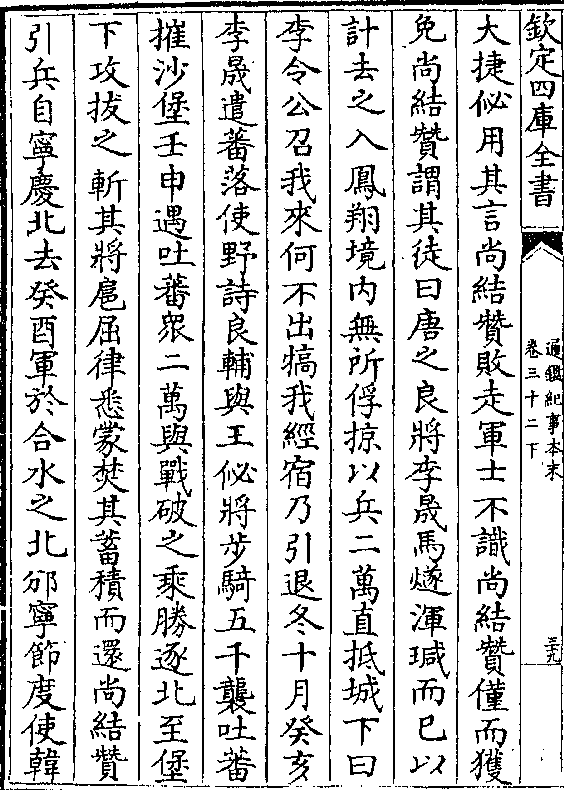 欽定四庫全書
通鑑紀事本末
卷三十二下
三十九
大捷佖用其言尚結贊敗走軍士不識尚結贊僅而獲
免尚結贊謂其徒曰唐之良將李晟馬燧渾瑊而已以
計去之入鳳翔境内無所俘掠以兵二萬直抵城下曰
李令公召我來何不出犒我經宿乃引退冬十月癸亥
李晟遣蕃落使野詩良輔與王佖將步騎五千襲吐蕃
摧沙堡壬申遇吐蕃衆二萬與戰破之乘勝逐北至堡
下攻拔之斬其將扈屈律悉蒙焚其蓄積而還尚結贊
引兵自寧慶北去癸酉軍於合水之北邠寧節度使韓